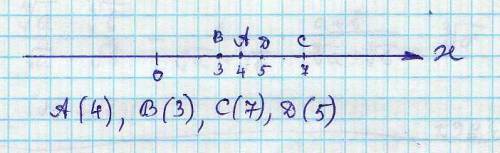 B A D C
0 3 4 5 7 x
A(4), B(3), C(7), D(5)